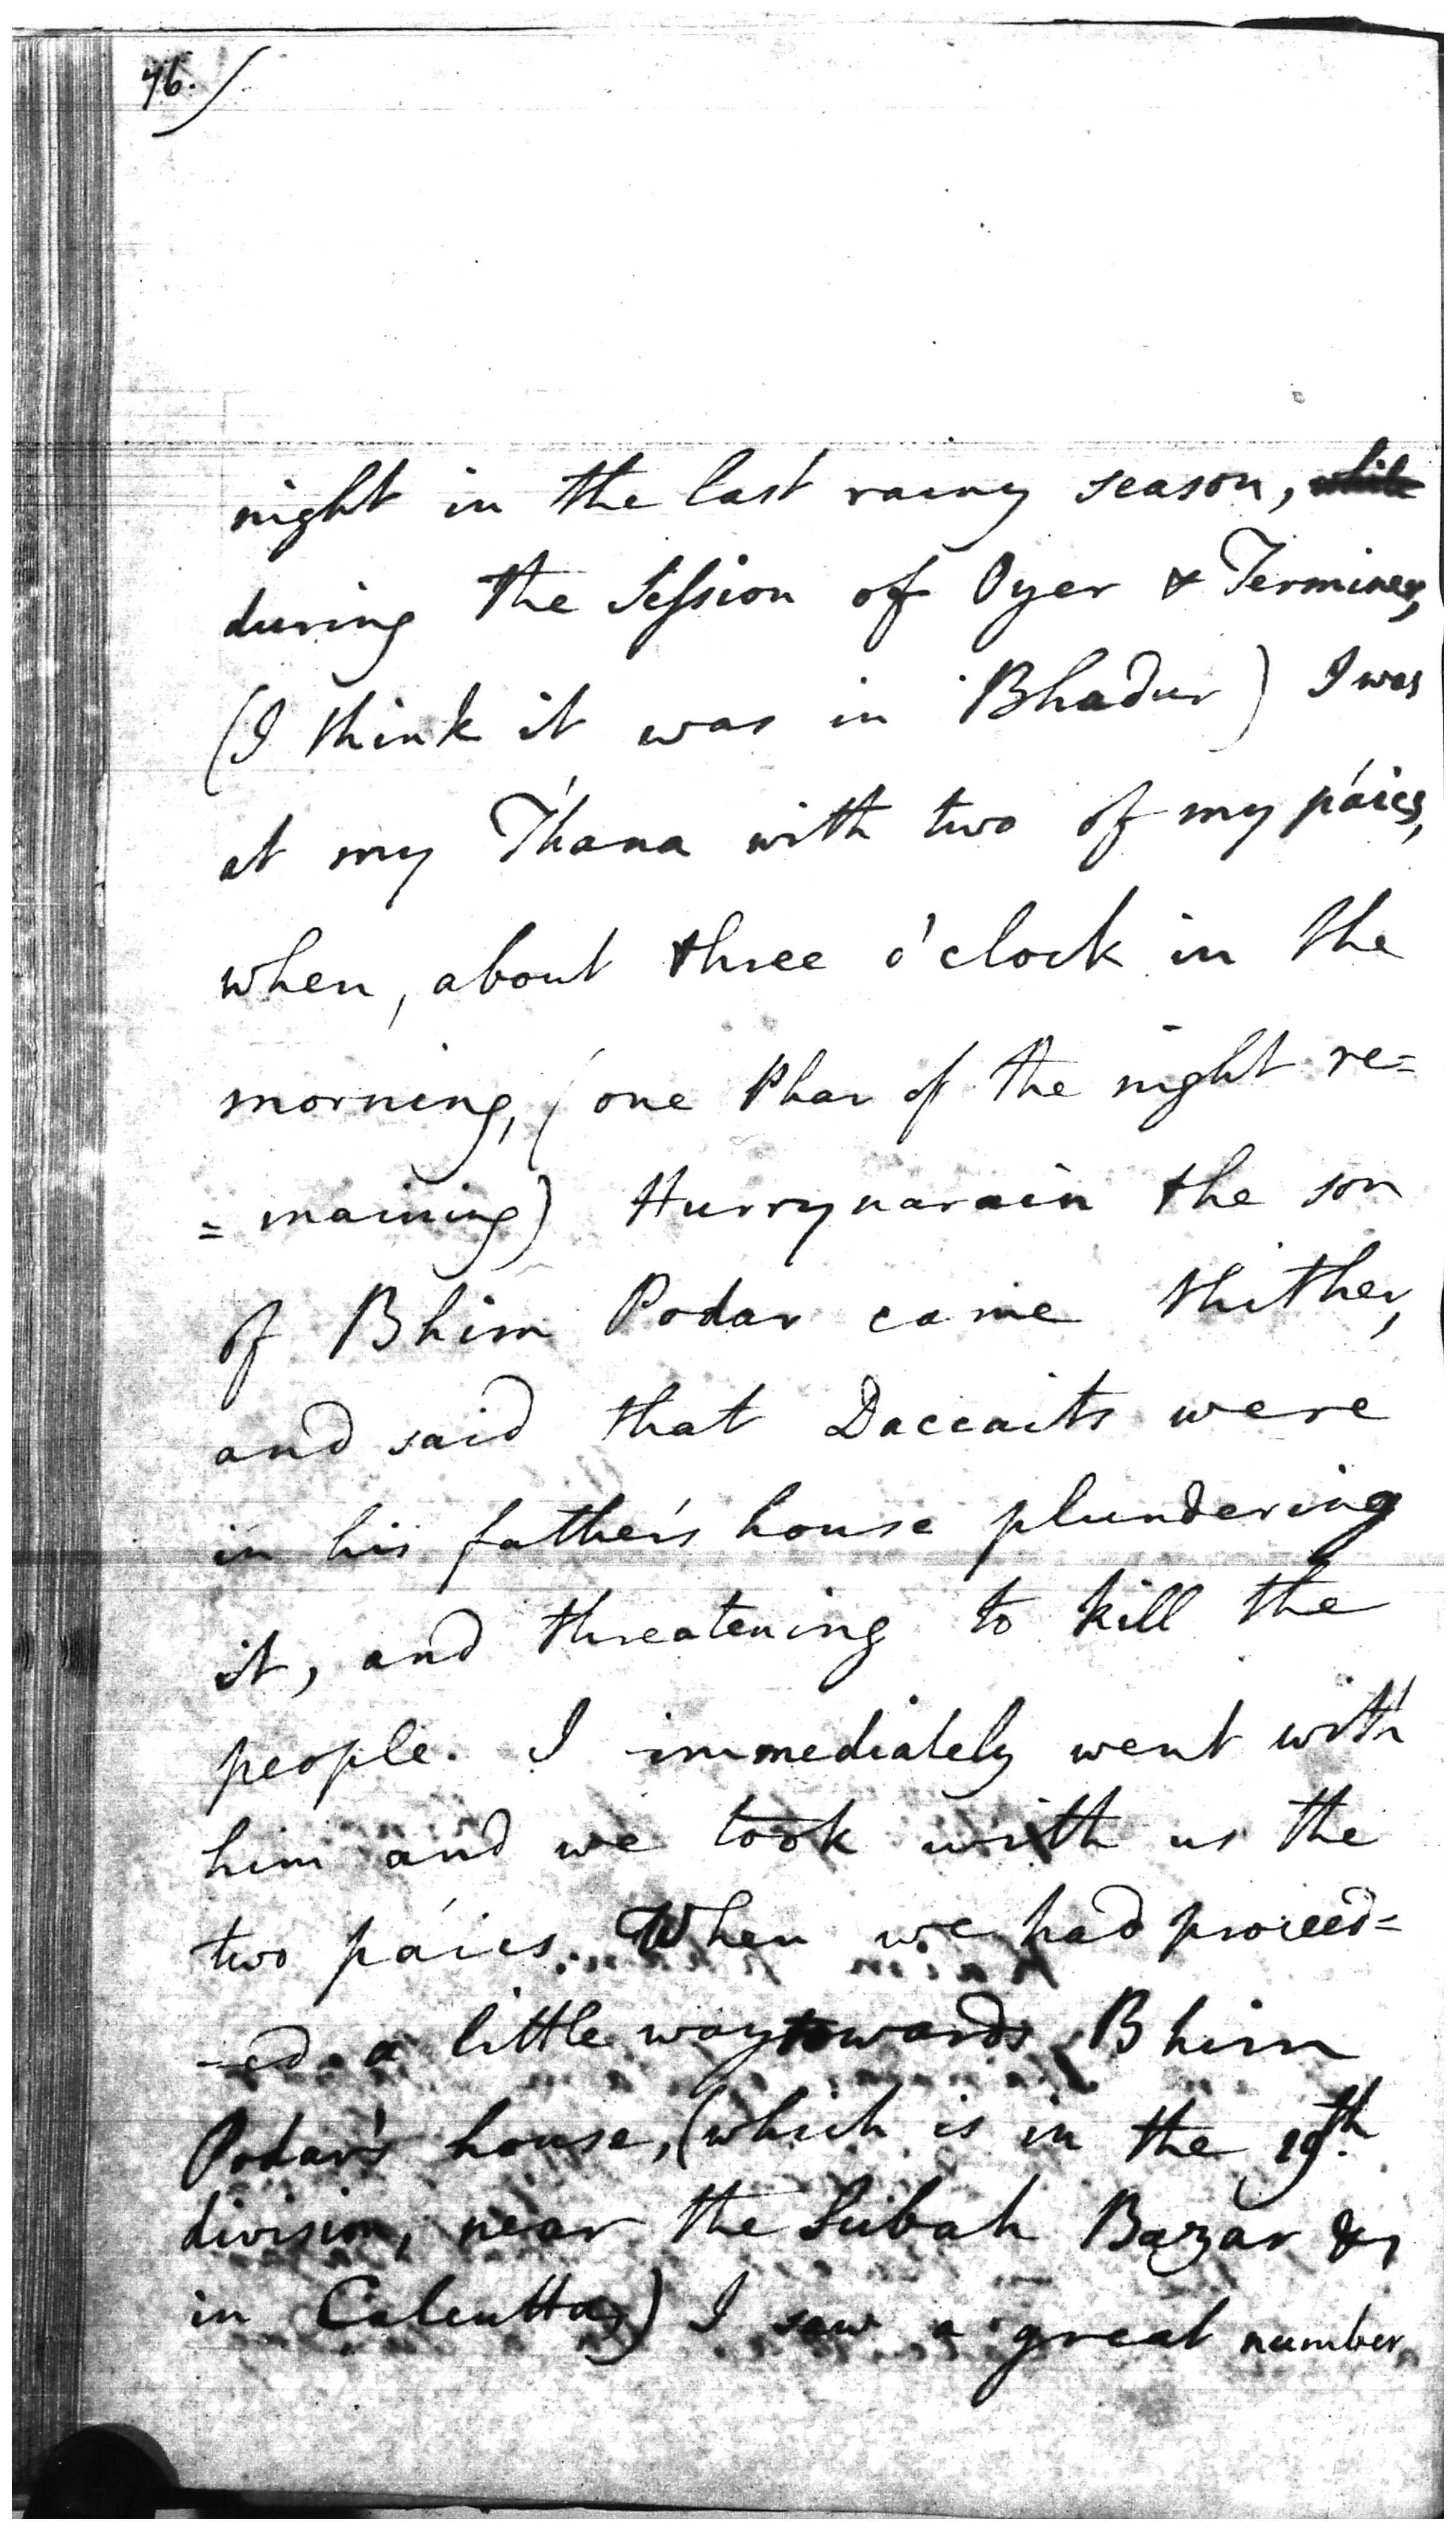 76.
night in the last rainy season, while
during the Session of Oyer & Terminer,
(I think it was in Bhadur) I was
at my Thána with two of my páics,
when, about three o'clock in the
morning, (one Phar of the night re=
=maining) Hurrynarain the son
of Bhim Podar came thither,
and said that Daccaits were
in his father's house plundering
it, and threatening to kill the
people. I immediately went with
him and we took with us the
two páics. When we had proceed=
=ed a little way towards Bhim
Podar's house, (which is in the 19th
division, near the Subah Bazar &
in Calcutta,) I saw a great number